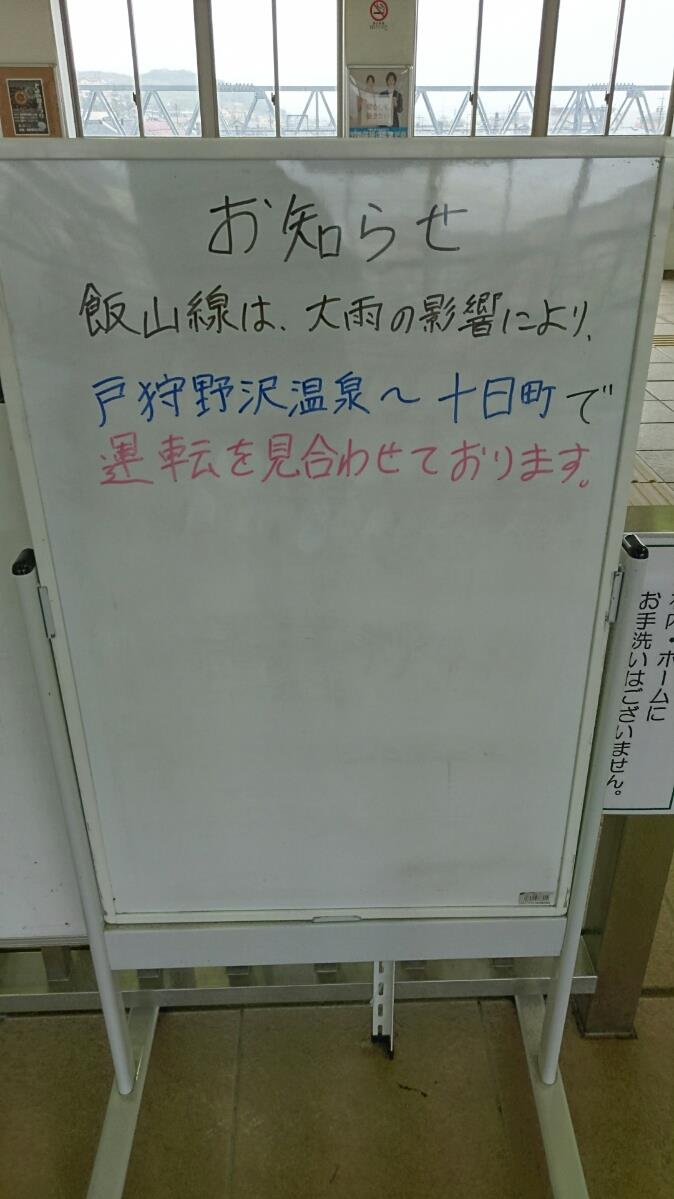 お知らせ
飯山線は、大雨の影響により、
戸狩野沢温泉～十日町で
運転を見合わせております。
ホームに
お手洗いはございません。